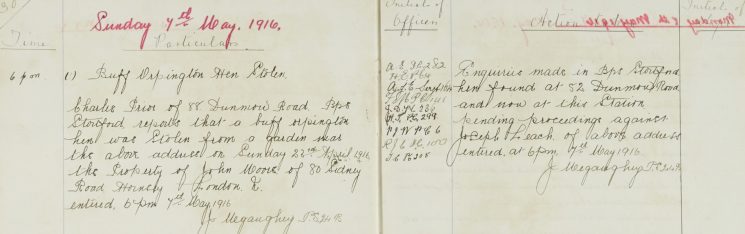 Sunday 7th May. 1916.
Time
Particulars
6 pm
(1) Buff Orpington Hen Stolen
Charles Prior of 88 Dunmow Road. Bps
Stortford reports that a buff orpington
hen was stolen from a garden near
the above address on Sunday 22nd April 1916
the Property of John Moore of 80 Sidney
Road Hornsby London. E.
entered, 6 pm 7th May 1916
J. Megaughey P.C. 24 B
Initials of
Officer
Action
Initials of
Enquiries made in Bps Stortford
hen found at 82 Dunmow Road,
and now at this Station
pending proceedings against
Joseph Leach of above address
entered, at 6 pm 7th May 1916.
J. Megaughey P.C. 24 B